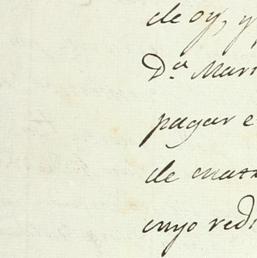 de oy, y
D.ª Mari
pagar e
de
cuyo redi